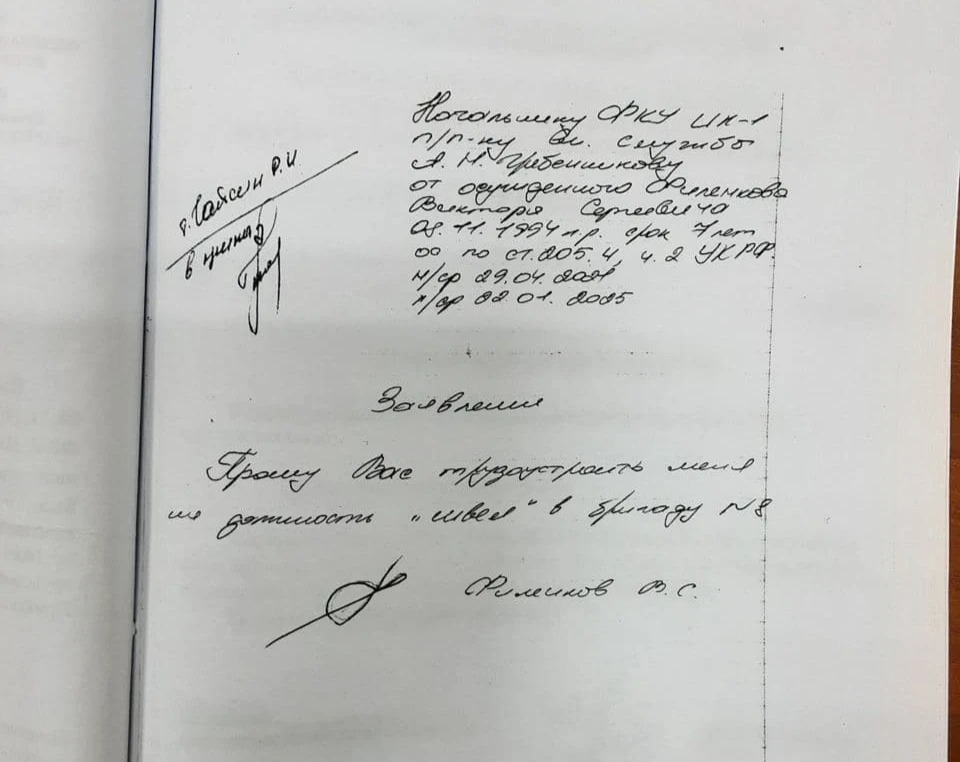 Начальнику ФКУ ИК-1
п/п-ку вн. службы
А. Н. Гребенщикову
от осужденного Филенкова
Виктора Сергеевича
08.11.1994 г.р. срок 7 лет
оо по ст. 205.4, ч. 2 УК РФ.
н/ср 29.04.2021
к/ср 22.01.2025
г. Гайсин Р.И.
в приказ
Заявление
Прошу Вас трудоустроить меня
на должность „швея" в бригаду №8
Филенков В.С.